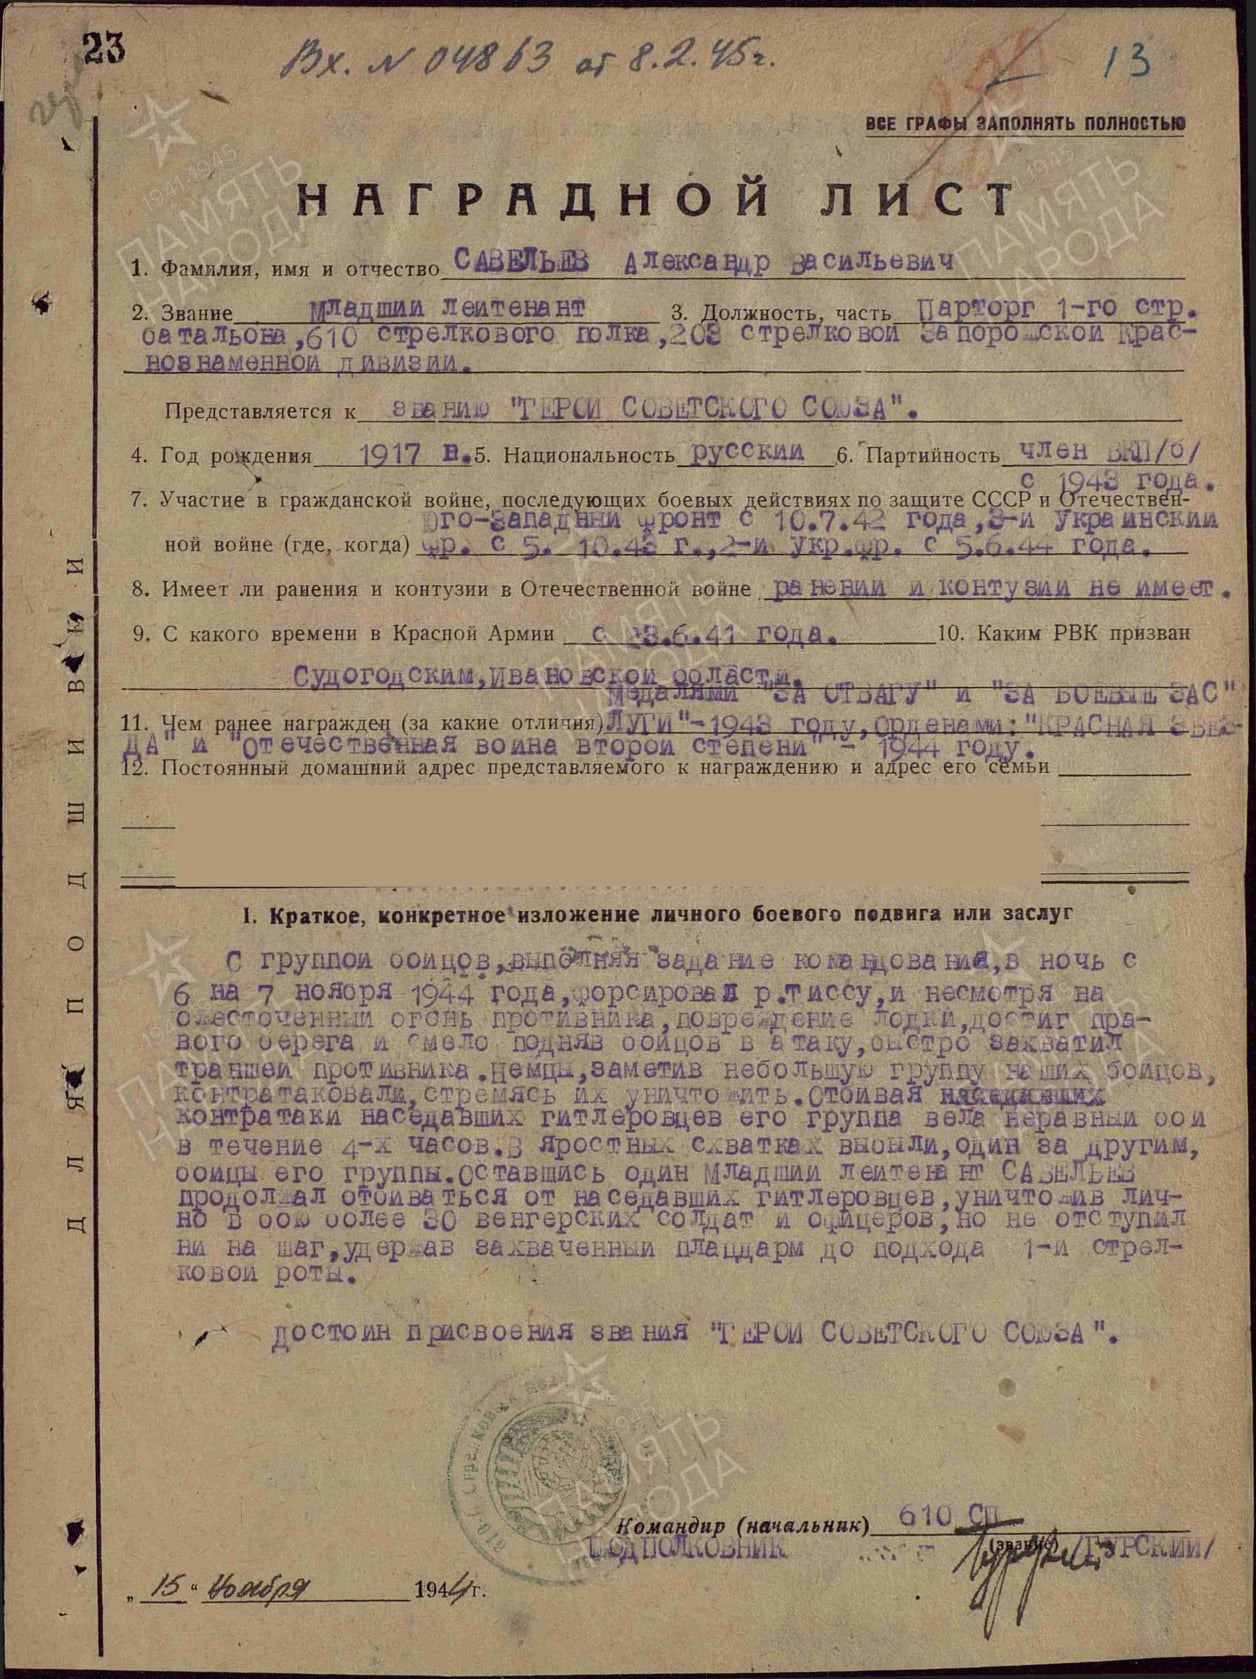 23
Вх. N 04863 от 8.2.45г.
13
ВСЕ ГРАФЫ ЗАПОЛНЯТЬ ПОЛНОСТЬЮ
НАГРАДНОЙ ЛИСТ
1. Фамилия, имя и отчество САВЕЛЬЕВ Александр Васильевич
2. Звание Младший лейтенант 3. Должность, часть Парторг 1-го стр.
батальона,610 стрелкового полка,203 стрелковой Запорожской Крас-
нознаменной дивизии.
Представляется к званию "ГЕРОЙ СОВЕТСКОГО СОЮЗА".
4. Год рождения 1917 г. 5. Национальность русский 6. Партийность член ВКП/б/
с 1943 года.
7. Участие в гражданской войне, последующих боевых действиях по защите СССР и Отечествен-
Юго-Западный фронт с 10.7.42 года,3-й Украинский
ной войне (где, когда) фр. с 5. 10.43 г.,2-й укр.фр. с 5.6.44 года.
8. Имеет ли ранения и контузии в Отечественной войне ранений и контузий не имеет.
9. С какого времени в Красной Армии с 23.6.41 года. 10. Каким РВК призван
Судогодским,Ивановской области.
Медалями "ЗА ОТВАГУ" и "ЗА БОЕВЫЕ ЗАС"
11. Чем ранее награжден (за какие отличия) ЛУГИ"-1943 году,Орденами:"КРАСНАЯ ЗВЕЗ-
ДА" и "Отечественная война второй степени" - 1944 году.
12. Постоянный домашний адрес представляемого к награждению и адрес его семьи
I. Краткое, конкретное изложение личного боевого подвига или заслуг
С группой бойцов,выполняя задание командования,в ночь с
6 на 7 ноября 1944 года,форсировал р.Тиссу,и несмотря на
ожесточенный огонь противника,повреждение лодки,достиг пра-
вого берега и смело подняв бойцов в атаку,быстро захватил
траншеи противника.Немцы,заметив небольшую группу наших бойцов,
контратаковали,стремясь их уничтожить.Отбивая наседавших
контратаки наседавших гитлеровцев его группа вела неравный бой
в течение 4-х часов.В яростных схватках выбыли,один за другим,
бойцы его группы.Оставшись один Младший лейтенант САВЕЛЬЕВ
продолжал отбиваться от наседавших гитлеровцев,уничтожив лич-
но в бою более 30 венгерских солдат и офицеров,но не отступил
ни на шаг,удержав захваченный плацдарм до подхода 1-й стрел-
ковой роты.
достоин присвоения звания "ГЕРОЙ СОВЕТСКОГО СОЮЗА".
Командир (начальник) 610 СП
(звание)
ПОДПОЛКОВНИК /ГУРСКИЙ/
„15" ноября 1944 г.
ДЛЯ ПОДШИВКИ
ПАМЯТЬ НАРОДА
1941-1945